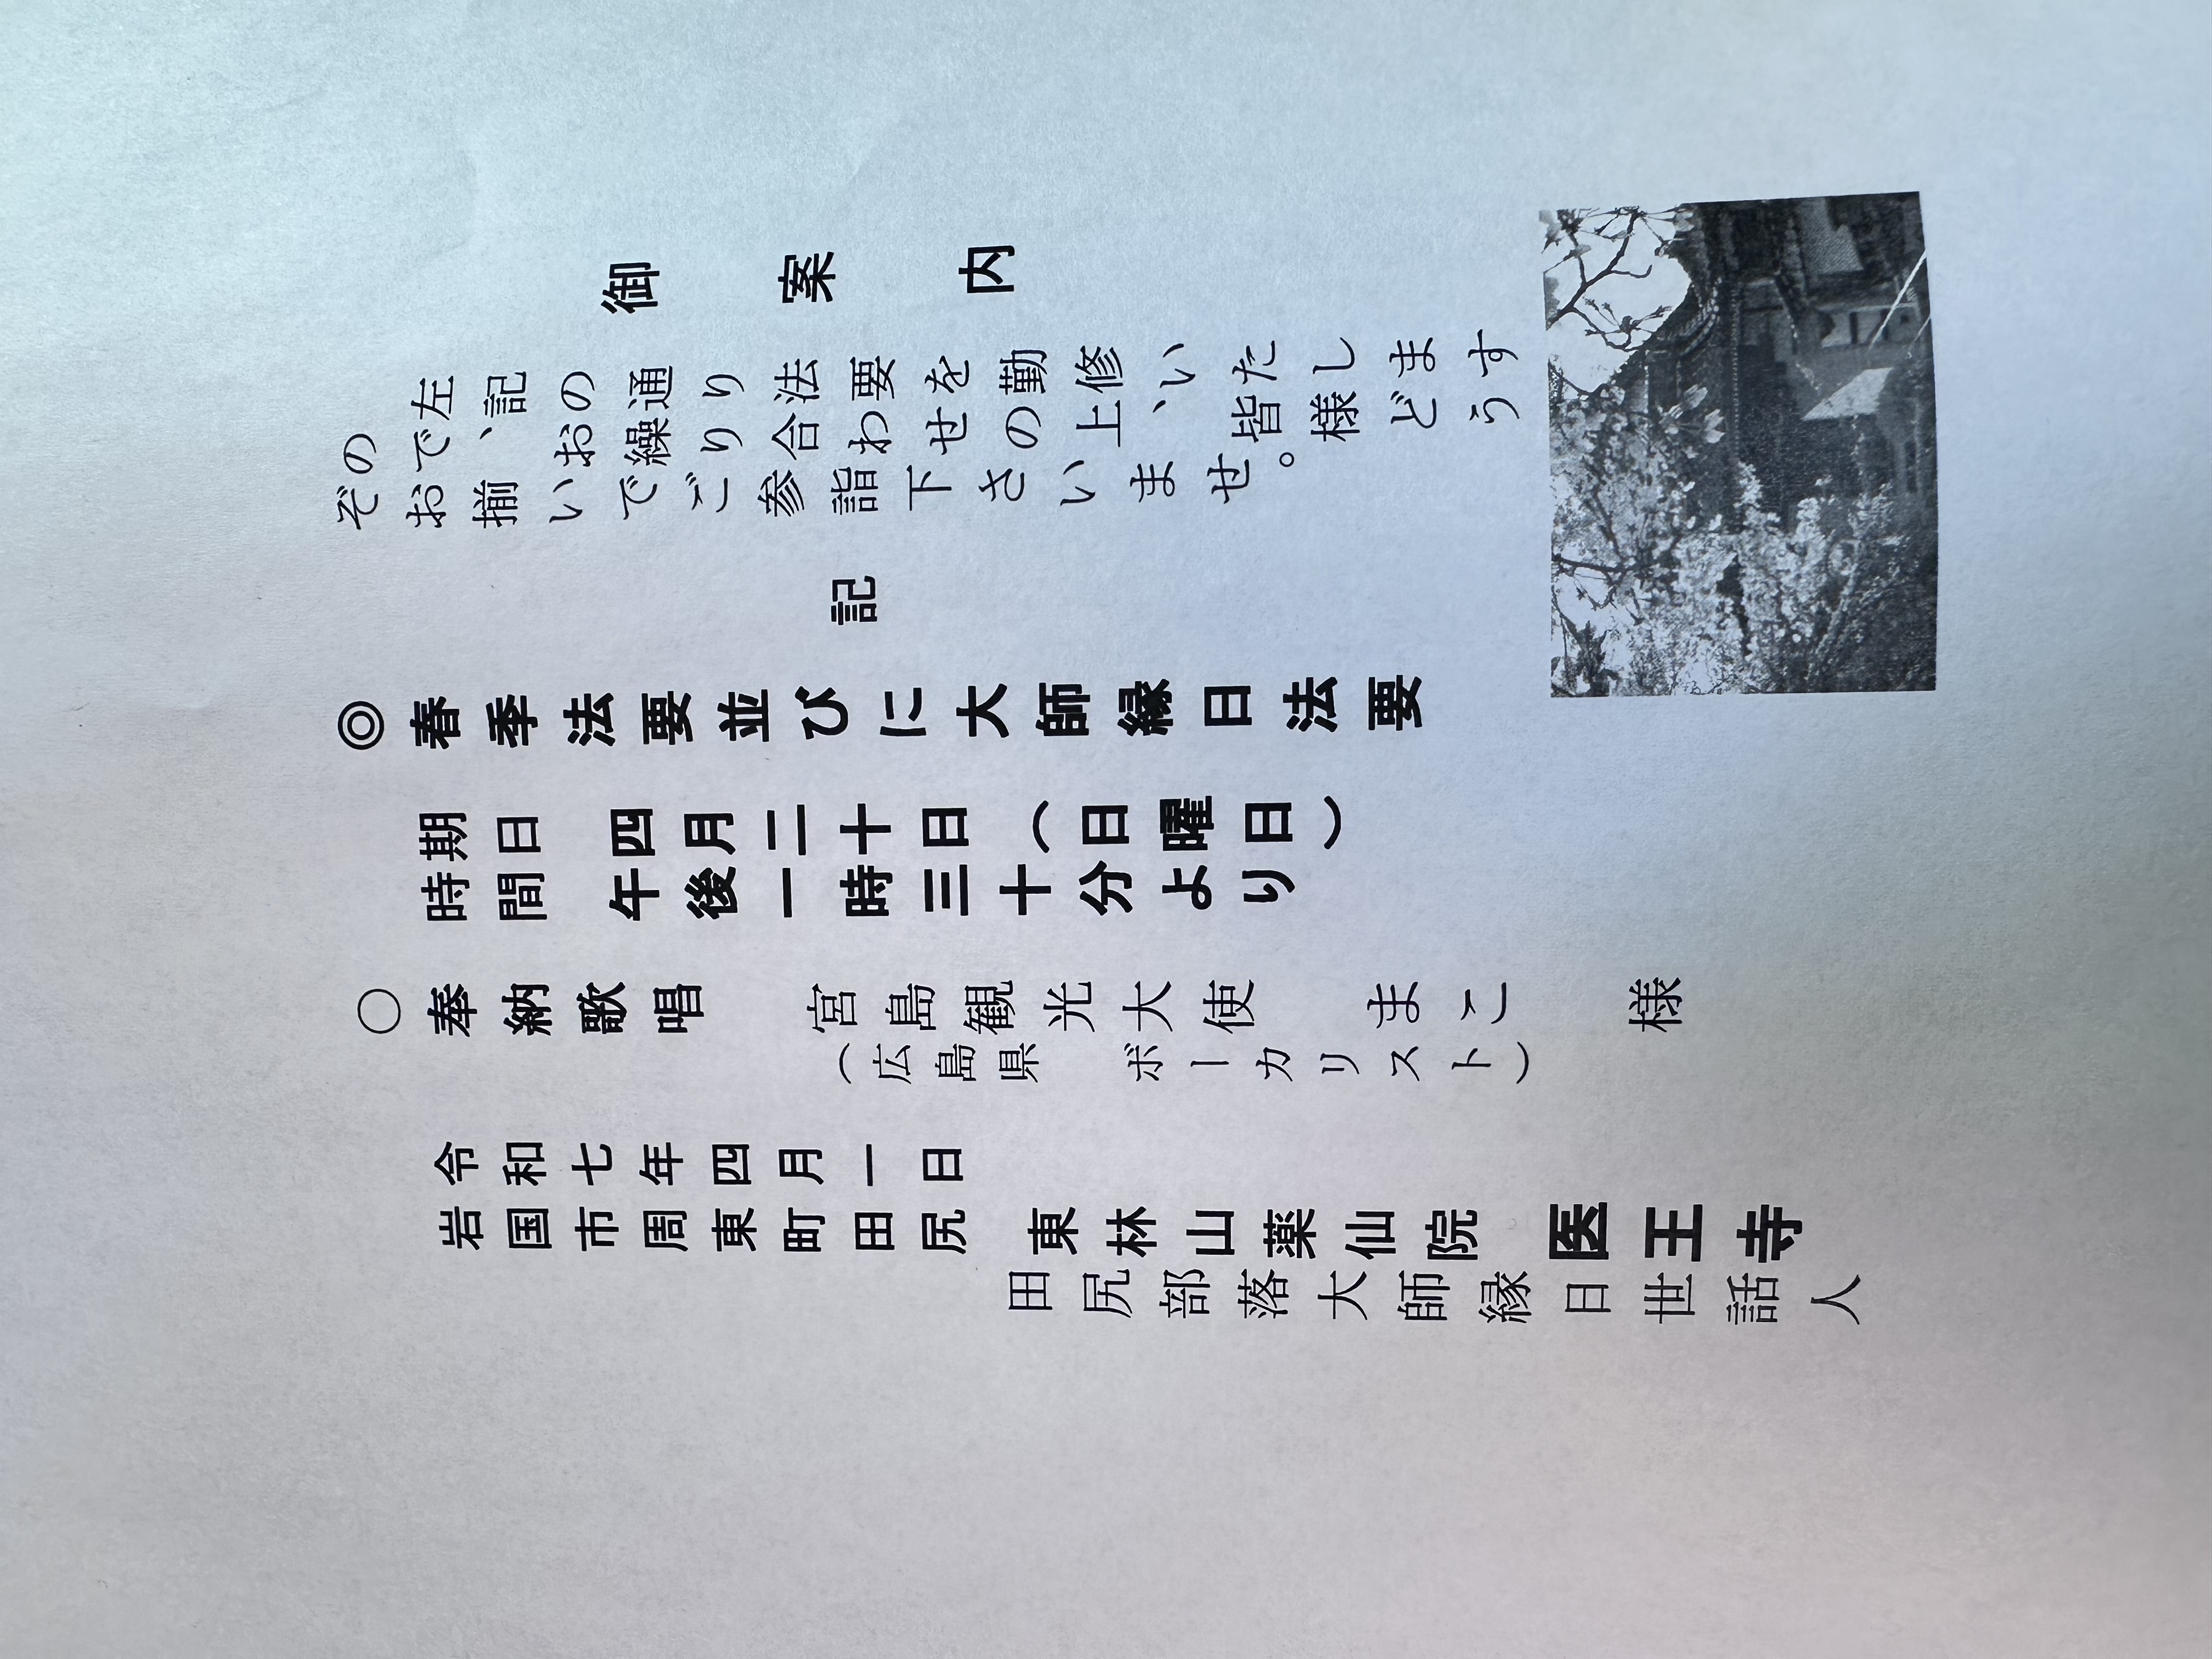 御案内
左記の通り法要を勤修いたします
ので、お繰り合わせの上、皆様どう
ぞお揃いでご参詣下さいませ。
記
◎春季法要並びに大師縁日法要
期日 四月二十日（日曜日）
時間 午後一時三十分より
○奉納歌唱 宮島観光大使 まこ 様
（広島県 ボーカリスト）
令和七年四月一日
岩国市周東町田尻 東林山薬仙院 医王寺
田尻部落大師縁日世話人